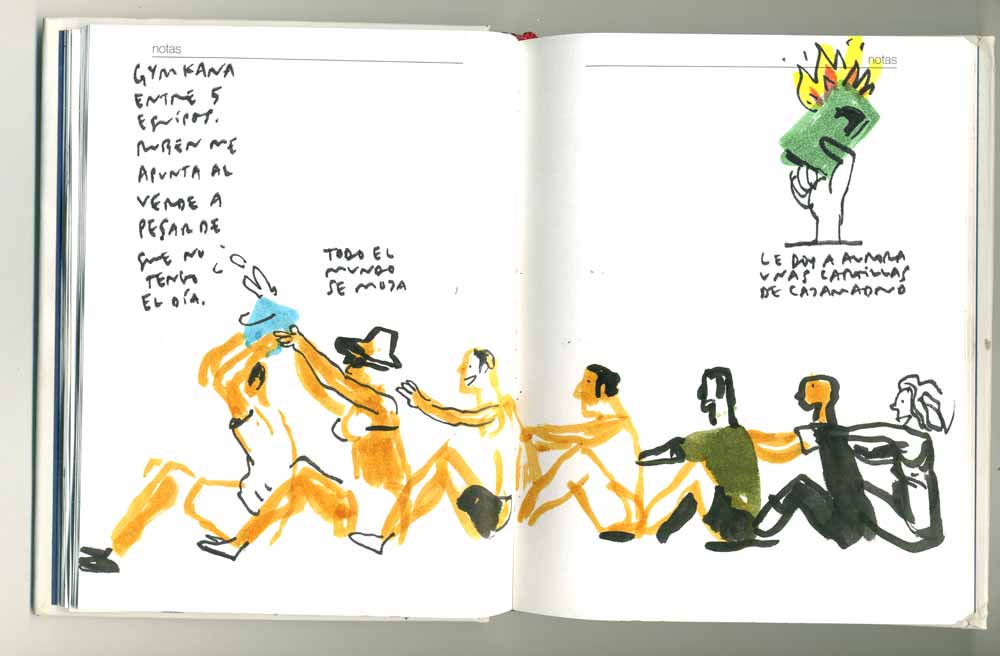 notas
GYMKANA
ENTRE 5
EQUIPOS.
RUBÉN ME
APUNTA AL
VERDE A
PESAR DE
QUE NO
TENGO
EL DÍA.
TODO EL
MUNDO
SE MOJA
notas
LE DOY A AURORA
UNAS CARTILLAS
DE CAJAMADRID